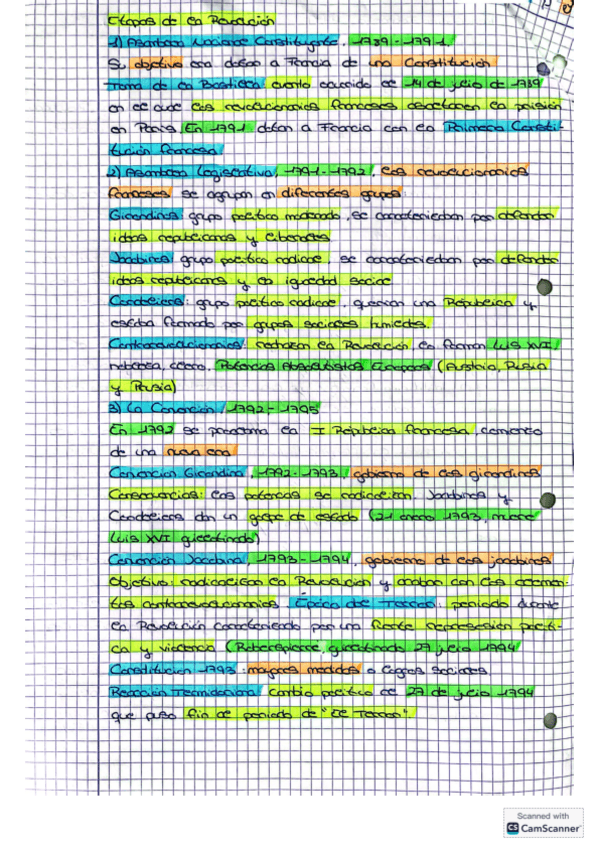 Etapas de la Revolución
1) Asamblea Nacional Constituyente, 1789-1791.
Su objetivo era dotar a Francia de una Constitución
Toma de la Bastilla: evento ocurrido el 14 de julio de 1789
en el que los revolucionarios franceses asaltaron la prisión
en París. En 1791 dotan a Francia con la Primera Consti-
tución francesa.
2) Asamblea Legislativa, 1791-1792, los revolucionarios
franceses se agrupan en diferentes grupos:
Girondinos: grupo político moderado, se caracterizaban por defender
ideas republicanas y liberales
Jacobinos: grupo político radical, se caracterizaban por defender
ideas republicanas y la igualdad social
Cordeliers: grupo político radical, querían una República y
estaba formado por grupos sociales humildes.
Contrarrevolucionarios: rechazan la Revolución, la forman Luis XVI,
nobleza, clero, Potencias Absolutistas Europeas (Austria, Rusia
y Prusia)
3) La Convención, 1792-1795
En 1792 se proclama la I República francesa, comienzo
de una nueva era
Convención Girondina, 1792-1793, gobierno de los girondinos
Consecuencias: las potencias se radicalizan. Jacobinos y
Cordeliers dan un golpe de estado (21 enero 1793, muere
Luis XVI guillotinado)
Convención Jacobina, 1793-1794, gobierno de los jacobinos
Objetivo: radicalizan la Revolución y acaban con los
contrarrevolucionarios. Época del Terror: periodo durante
la Revolución caracterizado por una fuerte represión políti-
ca y violencia (Robespierre, guillotinado 27 julio 1794)
Constitución 1793: mayores medidas o logros sociales
Reacción Termidoriana: cambio político el 27 de julio 1794
que puso fin al periodo de "El Terror".
Scanned with
CS CamScanner